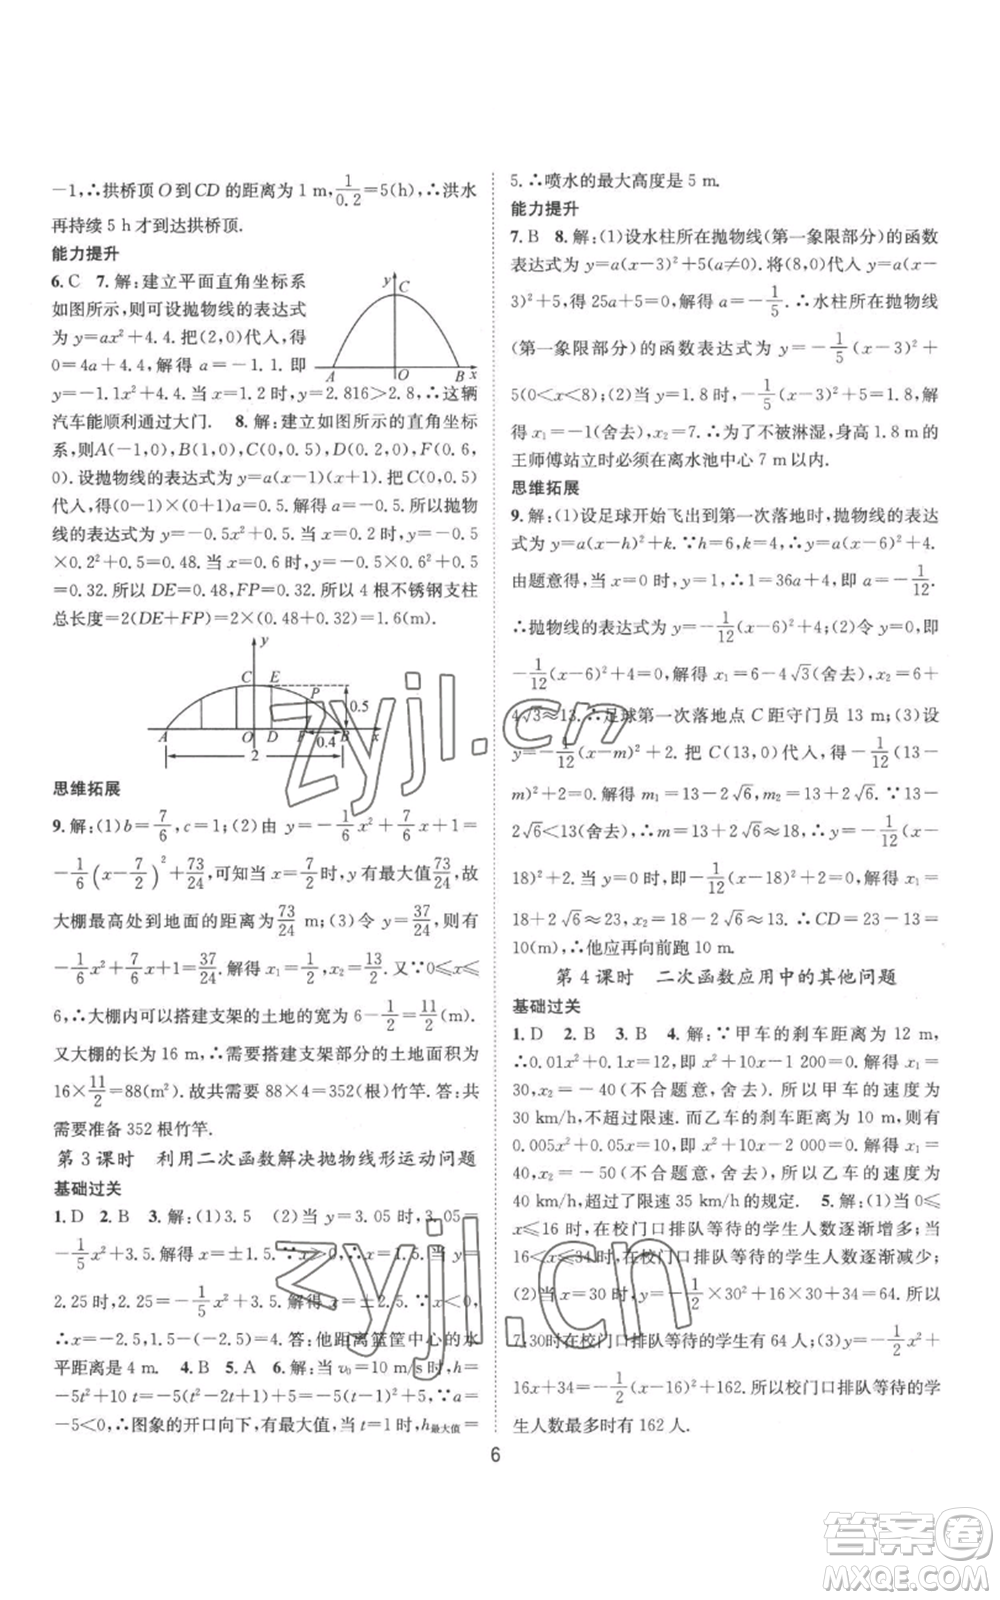 -1,∴拱桥顶 O 到 CD 的距离为 1 m,1/0.2=5(h),∴洪水
再持续 5 h 才到达拱桥顶.
能力提升
6. C 7. 解:建立平面直角坐标系
如图所示,则可设抛物线的表达式
为 y=ax²+4.4. 把(2,0)代人,得
0=4a+4.4,解得 a=-1.1. 即
y=-1.1x²+4.4. 当 x=1.2 时,y=2.816>2.8,∴这辆
汽车能顺利通过大门. 8. 解:建立如图所示的直角坐标
系,则A(-1,0),B(1,0),C(0,0.5),D(0.2,0),F(0.6,
0). 设抛物线的表达式为 y=a(x-1)(x+1). 把 C(0,0.5)
代人,得(0-1)×(0+1)a=0.5. 解得 a=-0.5. 所以抛物
线的表达式为 y=-0.5x²+0.5. 当 x=0.2 时,y=-0.5
×0.2²+0.5=0.48. 当 x=0.6 时,y=-0.5×0.6²+0.5
=0.32. 所以 DE=0.48,FP=0.32. 所以 4 根不锈钢支柱
总长度=2(DE+FP)=2×(0.48+0.32)=1.6(m).
y
C
A
O
B
x
y
C E
P
0.5
A
O D F B x
0.4
2
思维拓展
9. 解:(1)b=7/6,c=1;(2)由 y=-1/6x²+7/6x+1=
-1/6(x-7/2)²+73/24,可知当 x=7/2时,y 有最大值73/24,故
大棚最高处到地面的距离为73/24 m;(3)令 y=37/24,则有
-1/6x²+7/6x+1=37/24. 解得 x₁=1/2,x₂=13/2. 又∵0≤x≤
6,∴大棚内可以搭建支架的土地的宽为 6-1/2=11/2(m).
又大棚的长为 16 m,∴需要搭建支架部分的土地面积为
16×11/2=88(m²). 故共需要 88×4=352(根)竹竿. 答:共
需要准备 352 根竹竿.
第 3 课时 利用二次函数解决抛物线形运动问题
基础过关
1. D 2. B 3. 解:(1)3.5 (2)当 y=3.05 时,3.05=
-1/5x²+3.5. 解得 x=±1.5. ∵x>0,∴x=1.5. 当 y=
2.25 时,2.25=-1/5x²+3.5. 解得 x=±2.5. ∵x<0,
∴x=-2.5,1.5-(-2.5)=4. 答:他距离篮筐中心的水
平距离是 4 m. 4. B 5. A 6. 解:当 v₀=10 m/s时,h=
-5t²+10 t=-5(t²-2t+1)+5=-5(t-1)²+5. ∵a=
-5<0,∴图象的开口向下,有最大值,当 t=1时,h最大值=
5. ∴喷水的最大高度是 5 m.
能力提升
7. B 8. 解:(1)设水柱所在抛物线(第一象限部分)的函数
表达式为 y=a(x-3)²+5(a≠0). 将(8,0)代入 y=a(x-
3)²+5,得 25a+5=0. 解得 a=-1/5. ∴水柱所在抛物线
(第一象限部分)的函数表达式为 y=-1/5(x-3)²+
5(0<x<8);(2)当 y=1.8 时,-1/5(x-3)²+5=1.8,解
得 x₁=-1(舍去),x₂=7. ∴为了不被淋湿,身高 1.8 m 的
王师傅站立时必须在离水池中心 7 m 以内.
思维拓展
9. 解:(1)设足球开始飞出到第一次落地时,抛物线的表达
式为 y=a(x-h)²+k. ∵h=6,k=4,∴y=a(x-6)²+4.
由题意得,当 x=0 时,y=1,即 1=36a+4,即 a=-1/12.
∴抛物线的表达式为 y=-1/12(x-6)²+4;(2)令 y=0,即
-1/12(x-6)²+4=0,解得 x₁=6-4√3(舍去),x₂=6+
4√3≈13. ∴足球第一次落地点 C 距守门员 13 m;(3)设
y=-1/12(x-m)²+2. 把 C(13,0)代入,得-1/12(13-
m)²+2=0. 解得 m₁=13-2√6,m₂=13+2√6. ∵13-
2√6<13(舍去),∴m=13+2√6≈18,∴y=-1/12(x-
18)²+2. 当 y=0 时,-1/12(x-18)²+2=0. 解得 x₁=
18-2√6≈13(舍去),x₂=18+2√6≈23,∴CD=23-13=
10(m),∴他应再向前跑 10 m.
第 4 课时 二次函数应用中的其他问题
基础过关
1. D 2. B 3. B 4. 解:∵甲车的刹车距离为 12 m,
∴0.01x²+0.1x=12,即 x²+10x-1 200=0. 解得 x₁=
30,x₂=-40(不合题意,舍去). 所以甲车的速度为
30 km/h,不超过限速. 而乙车的刹车距离为 10 m,则有
0.005x²+0.05x=10,即 x²+10x-2 000=0. 解得 x₁=
40,x₂=-50(不合题意,舍去). 所以乙车的速度为
40 km/h,超过了限速 35 km/h 的规定. 5. 解:(1)当 0≤
x≤16 时,在校门口排队等待的学生人数逐渐增多;当
16<x≤34 时,在校门口排队等待的学生人数逐渐减少;
(2)当 x=30 时,y=-1/2×30²+16×30+34=64. 所以
7:30时在校门口排队等待的学生有 64 人;(3)y=-1/2x²+
16x+34=-1/2(x-16)²+162. 所以校门口排队等待的学
生人数最多时有 162 人.
6
zyjl.cn
zyjl.cn
答案卷
MXQE.COM